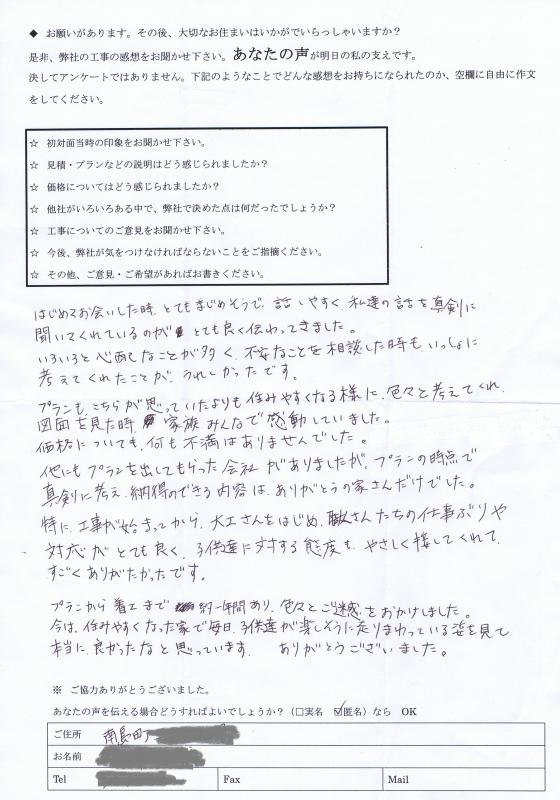 ◆ お願いがあります。その後、大切なお住まいはいかがでいらっしゃいますか？
是非、弊社の工事の感想をお聞かせ下さい。あなたの声が明日の私の支えです。
決してアンケートではありません。下記のようなことでどんな感想をお持ちになられたのか、空欄に自由に作文
をしてください。
☆ 初対面当時の印象をお聞かせ下さい。
☆ 見積・プランなどの説明はどう感じられましたか？
☆ 価格についてはどう感じられましたか？
☆ 他社がいろいろある中で、弊社で決めた点は何だったでしょうか？
☆ 工事についてのご意見をお聞かせ下さい。
☆ 今後、弊社が気をつけなければならないことをご指摘ください。
☆ その他、ご意見・ご希望があればお書きください。
はじめてお会いした時、とてもまじめそうで、話しやすく、私達の話を真剣に
聞いてくれているのが とても良く伝わってきました。
いろいろと心配なことが多く、不安なことを相談した時も、いっしょに
考えてくれたことが、うれしかったです。
プランも、こちらが思っていたよりも住みやすくなる様に、色々と考えてくれ、
図面を見た時、家族みんなで感動していました。
価格についても、何も不満はありませんでした。
他にもプランを出してもらった会社がありましたが、プランの時点で
真剣に考え、納得のできる内容は、ありがとうの家さんだけでした。
特に、工事が始まってから、大工さんをはじめ、職人さんたちの仕事ぶりや
対応がとても良く、子供達に対する態度も、やさしく接してくれて、
すごくありがたかったです。
プランから着工まで 約一年間あり、色々とご迷惑をおかけしました。
今は、住みやすくなった家で毎日、子供達が楽しそうに走りまわっている姿を見て
本当に良かったなと思っています。 ありがとうございました。
※ ご協力ありがとうございました。
あなたの声を伝える場合どうすればよいでしょうか？（□実名 ☑匿名）なら OK
ご住所 南島田町
お名前
Tel Fax Mail